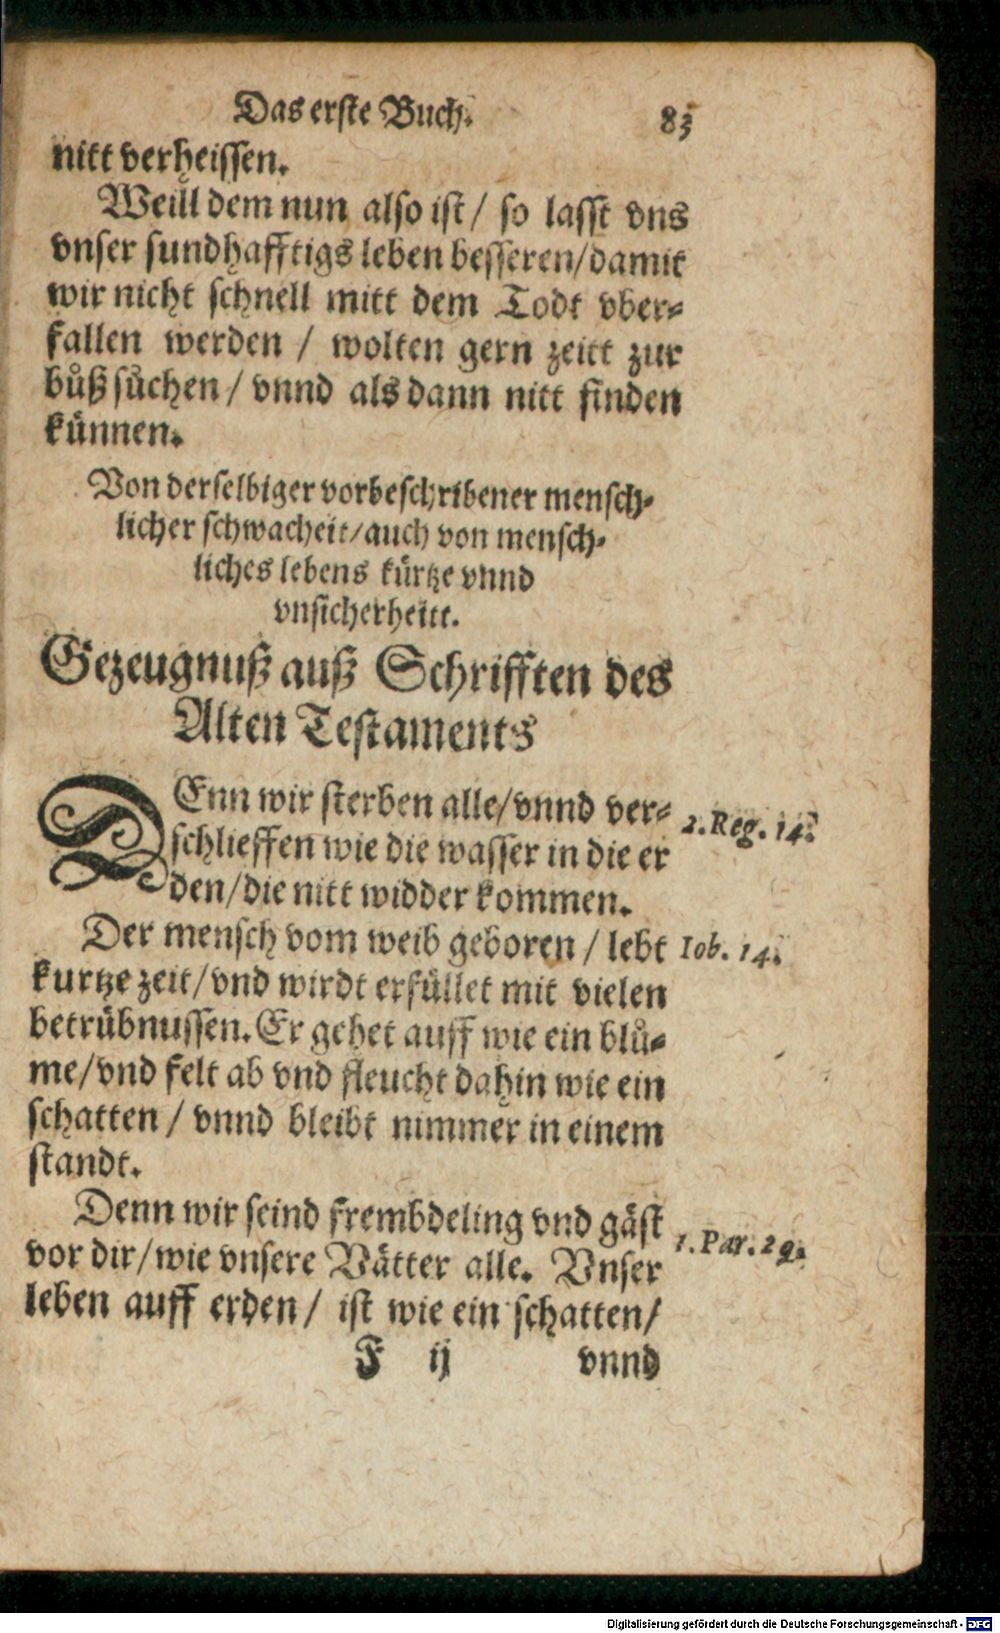 Das erste Buch. 83
nitt verheissen.
Weill dem nun also ist / so lasst vns
vnser sundhafftigs leben besseren/damit
wir nicht schnell mitt dem Todt vber-
fallen werden / wolten gern zeitt zur
bůß sůchen / vnnd als dann nitt finden
künnen.
Von derselbiger vorbeschribener mensch-
licher schwacheit/auch von mensch-
liches lebens kürtze vnnd
vnsicherheitt.
Gezeugnuß auß Schrifften des
Alten Testaments
DEnn wir sterben alle/vnnd ver-
schlieffen wie die wasser in die er
den/die nitt widder kommen.
2. Reg. 14.
Der mensch vom weib geboren / lebt
kurtze zeit/vnd wirdt erfüllet mit vielen
betrübnussen. Er gehet auff wie ein blů-
me/vnd felt ab vnd fleucht dahin wie ein
schatten / vnnd bleibt nimmer in einem
standt.
Iob. 14.
Denn wir seind frembdeling vnd gäst
vor dir/wie vnsere Vätter alle. Vnser
leben auff erden/ ist wie ein schatten/
1. Par. 29.
F ij vnnd
Digitalisierung gefördert durch die Deutsche Forschungsgemeinschaft - DFG